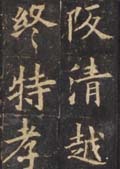 阪清越
終特孝